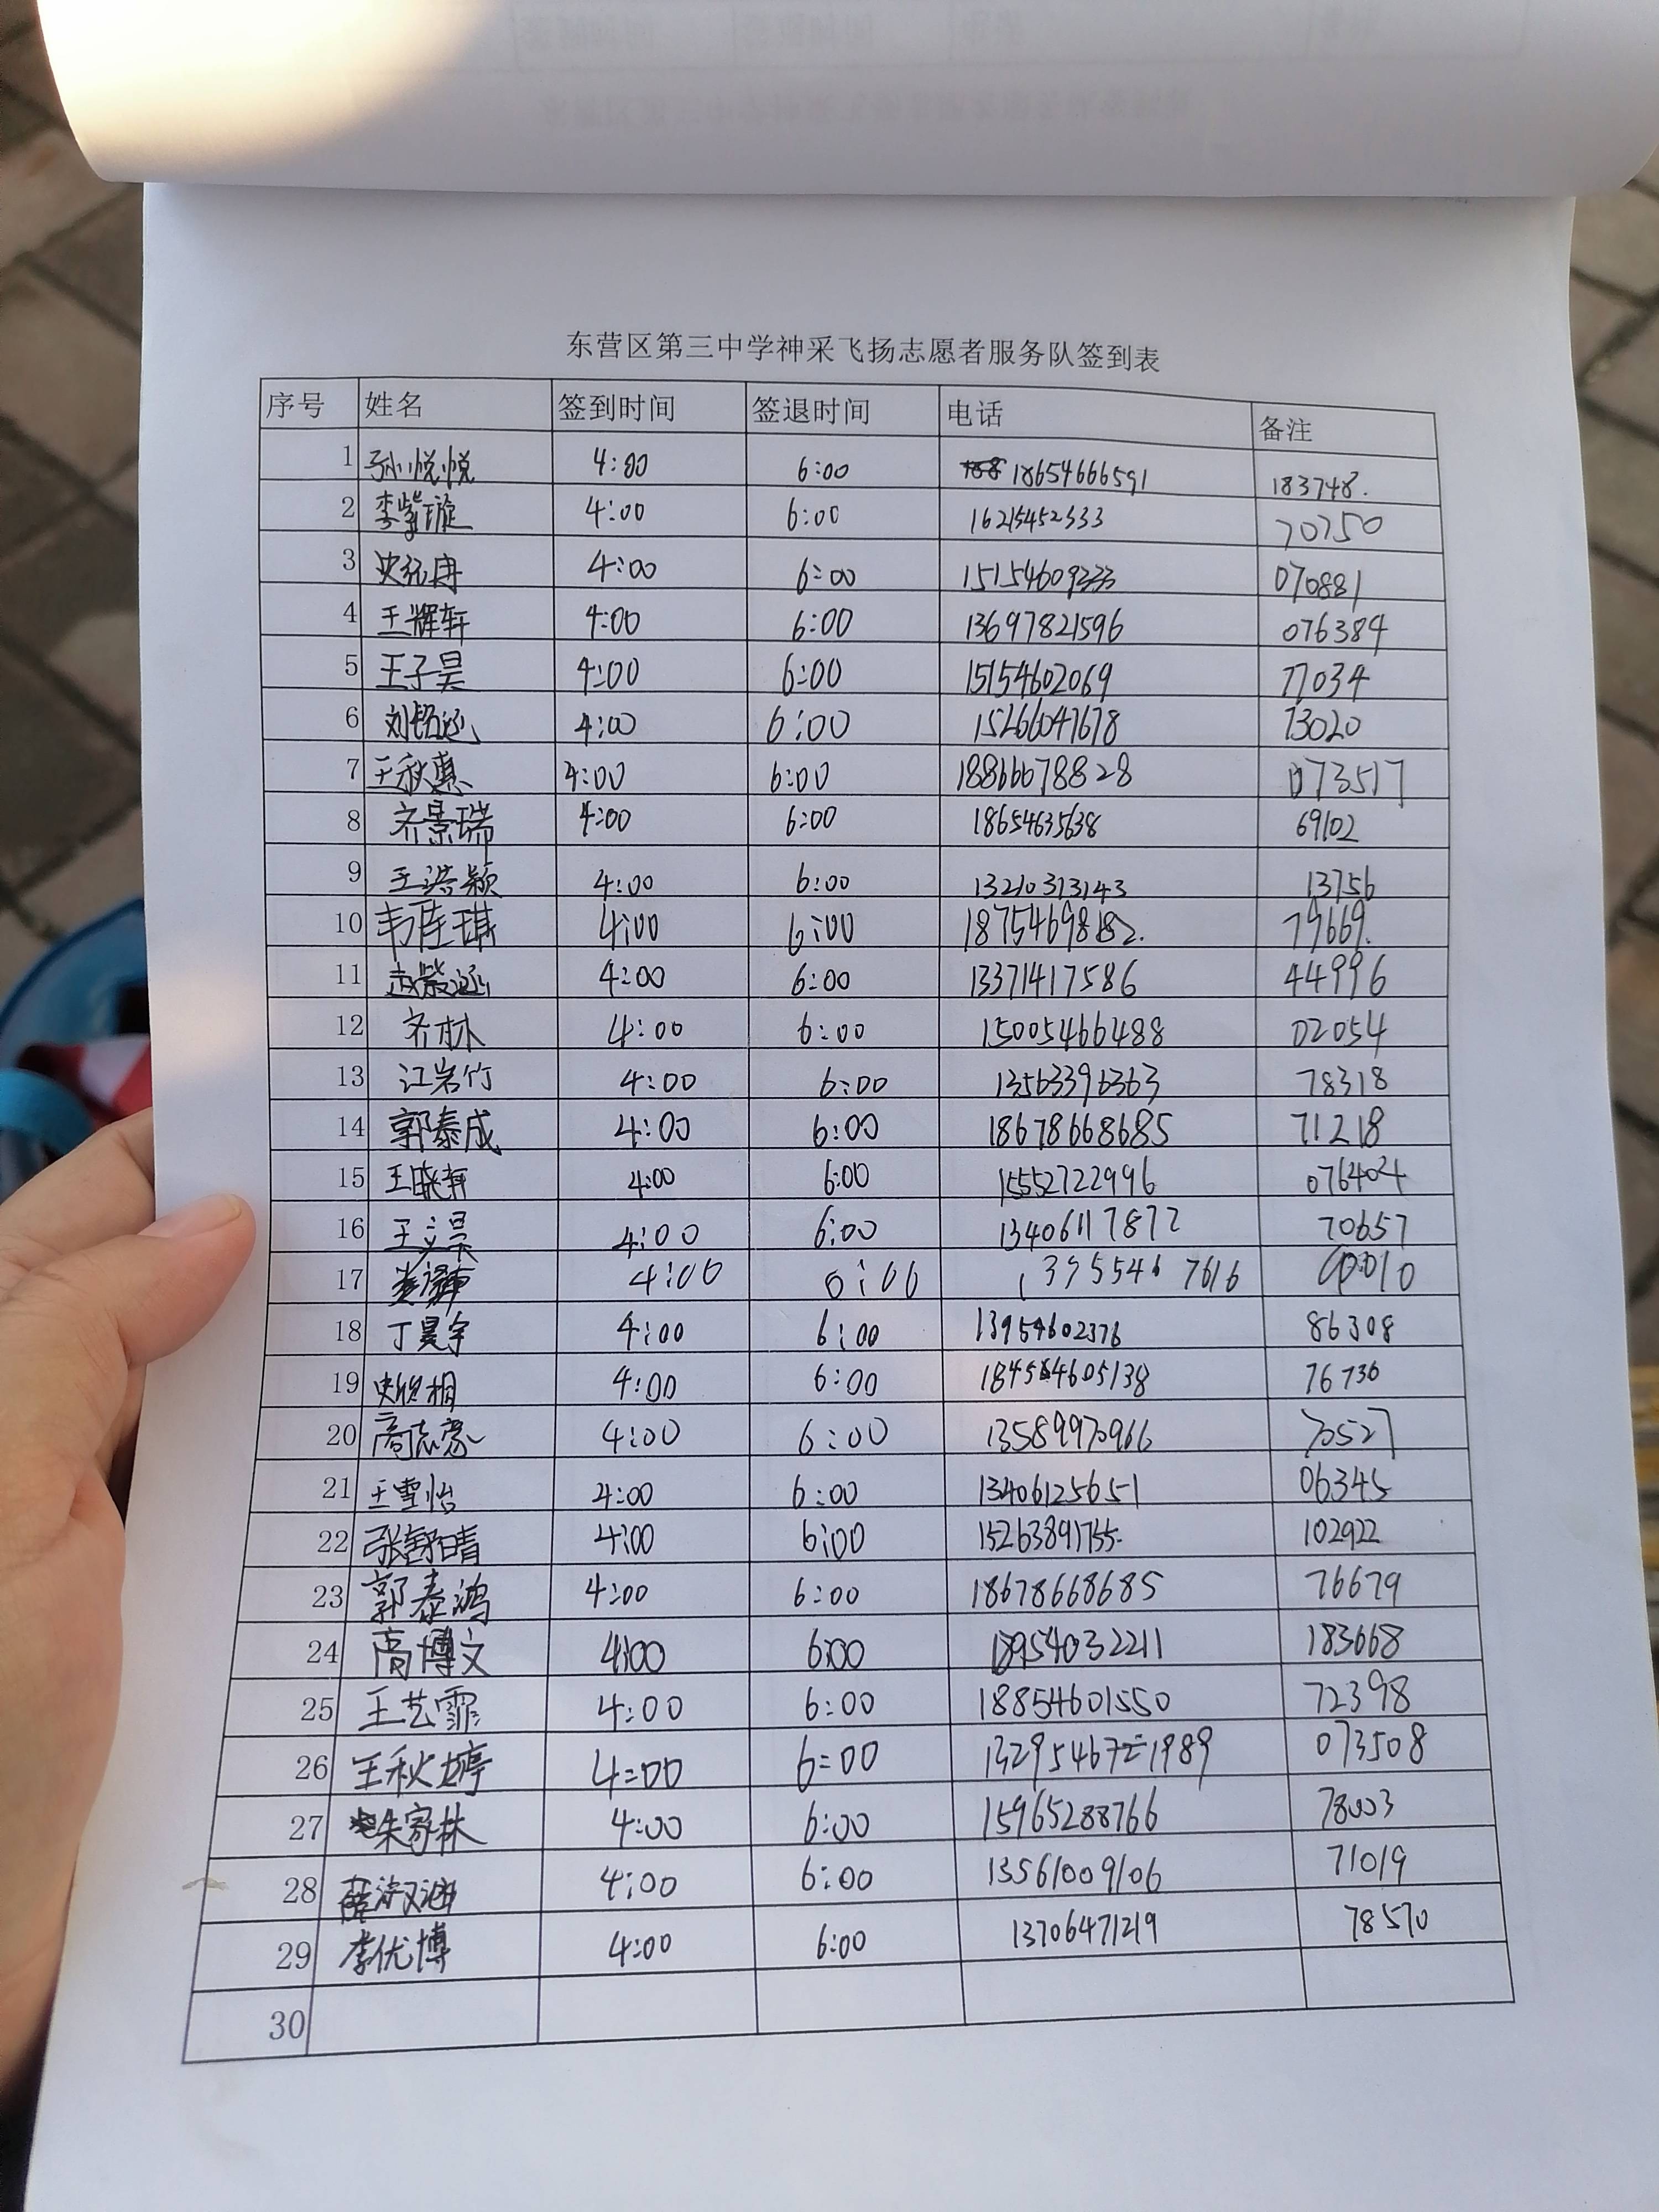 东营区第三中学神采飞扬志愿者服务队签到表
序号 姓名 签到时间 签退时间 电话 备注
1 孙悦悦 4:00 6:00 18654666591 183748.
2 李紫璇 4:00 6:00 16215452333 70750
3 4:00 6:00 15154609333 070881
4 王辉轩 4:00 6:00 13697821596 076384
5 王子昊 4:00 6:00 15154602069 77034
6 刘铭远 4:00 6:00 15266047678 73020
7 王秋惠 4:00 6:00 18866678828 073517
8 齐景瑞 4:00 6:00 18654635638 69102
9 王浩颖 4:00 6:00 13210313143 13756
10 4:00 6:00 18754698182. 79669.
11 赵紫涵 4:00 6:00 13371417586 44996
12 齐林 4:00 6:00 15005466488 02054
13 江岩竹 4:00 6:00 13563396363 78318
14 郭泰成 4:00 6:00 18678668685 71218
15 王晓轩 4:00 6:00 15552722996 076404
16 王立昊 4:00 6:00 13406117872 70657
17 4:00 6:00 13955467616
18 丁昊宇 4:00 6:00 13954602376 86308
19 4:00 6:00 18454605138 76736
20 高志豪 4:00 6:00 13589970966 70527
21 王雪怡 4:00 6:00 13406125651 06345
22 张舒晴 4:00 6:00 15263891755 102922
23 郭泰鸿 4:00 6:00 18678668685 76679
24 高博文 4:00 6:00 18954032211 183668
25 王艺霏 4:00 6:00 18854601550 72398
26 王秋婷 4:00 6:00 073508
27 朱家林 4:00 6:00 15965288766 78003
28 4:00 6:00 13561009106 71019
29 李优博 4:00 6:00 13706471219 78570
30